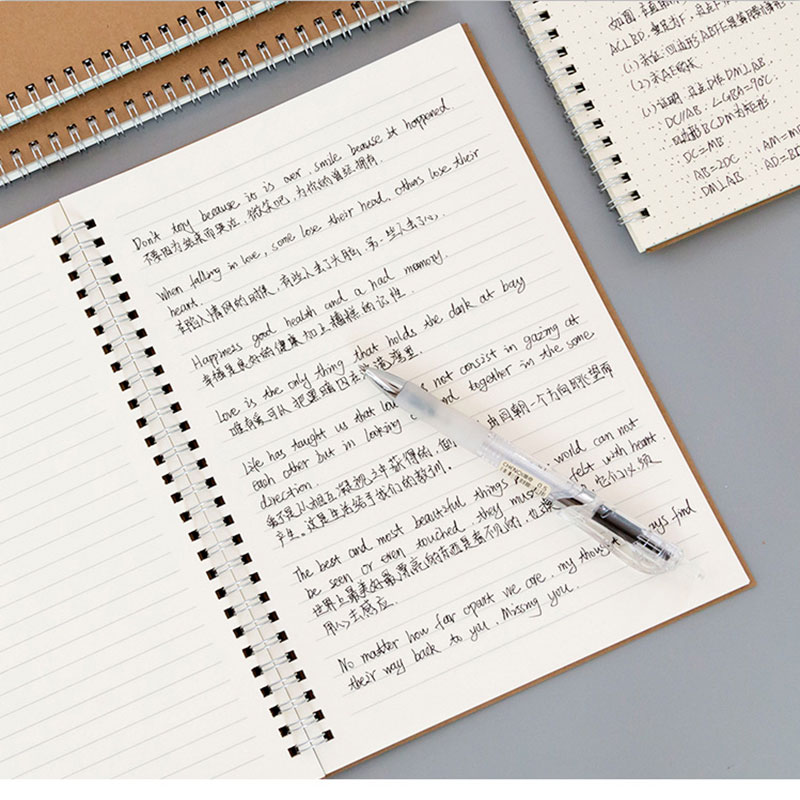 Don't tory because is is over, smile beause it happened.
不要因为结束而哭泣，微笑吧，为你的曾经拥有.
When falling in love, some lose their head, others lose their
heart.
在陷入情网的时候，有些人丢了头脑，另一些人丢了心.
Happiness good health and a had mamory.
幸福是良好的健康加上糟糕的记性.
Love is the only thing that holds the dark at bay
唯有爱可以把黑暗囚在港湾里.
Life has taught us that not consist in gazing at
each other but in looking together in the same
direction.
爱不是从相互凝视之中获得的, 由同朝一个方向眺望而
产生。这是生活给予我们的教训。
The best and most beautiful things world can not
be seen or even touched, they must felt with heart.
世界上最美好最漂亮的东西是看不见的, 它们必须
用心去感应.
No matter how far apart we are, my thought find
their way back to you. Missing you.
CHENGU 0.5
如图,
AC⊥BD, 垂足为F,
(1) 求证: 四边形ABFE是等腰梯形
(2) 求AE的长
(1) 证明: 过点D作DM⊥AB.
∵ DC∥AB, ∠CBA=90°
∴ 四边形BCDM为矩形.
∴ DC=MB
∵ AB=2DC ∴ AM=M
∵ DM⊥AB ∴ AD=B